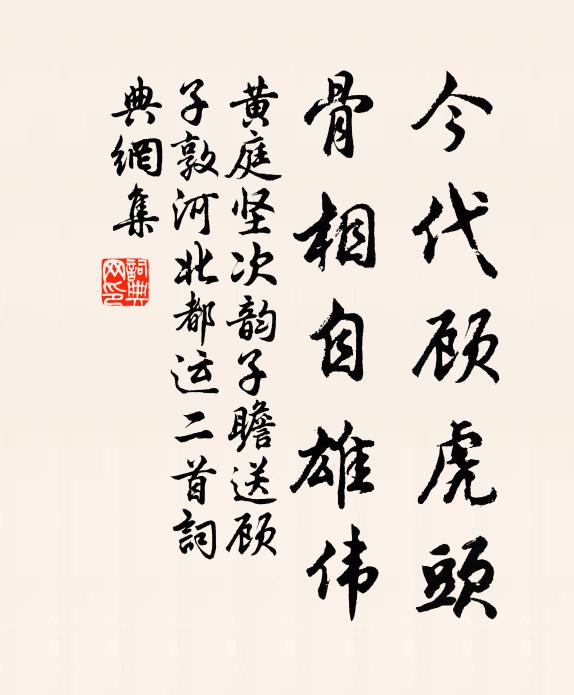 今代顾虎頭
骨相自雄伟
黄庭坚次韵子瞻送顾
子敦河北都运二首詞
典網集
詞典
网印